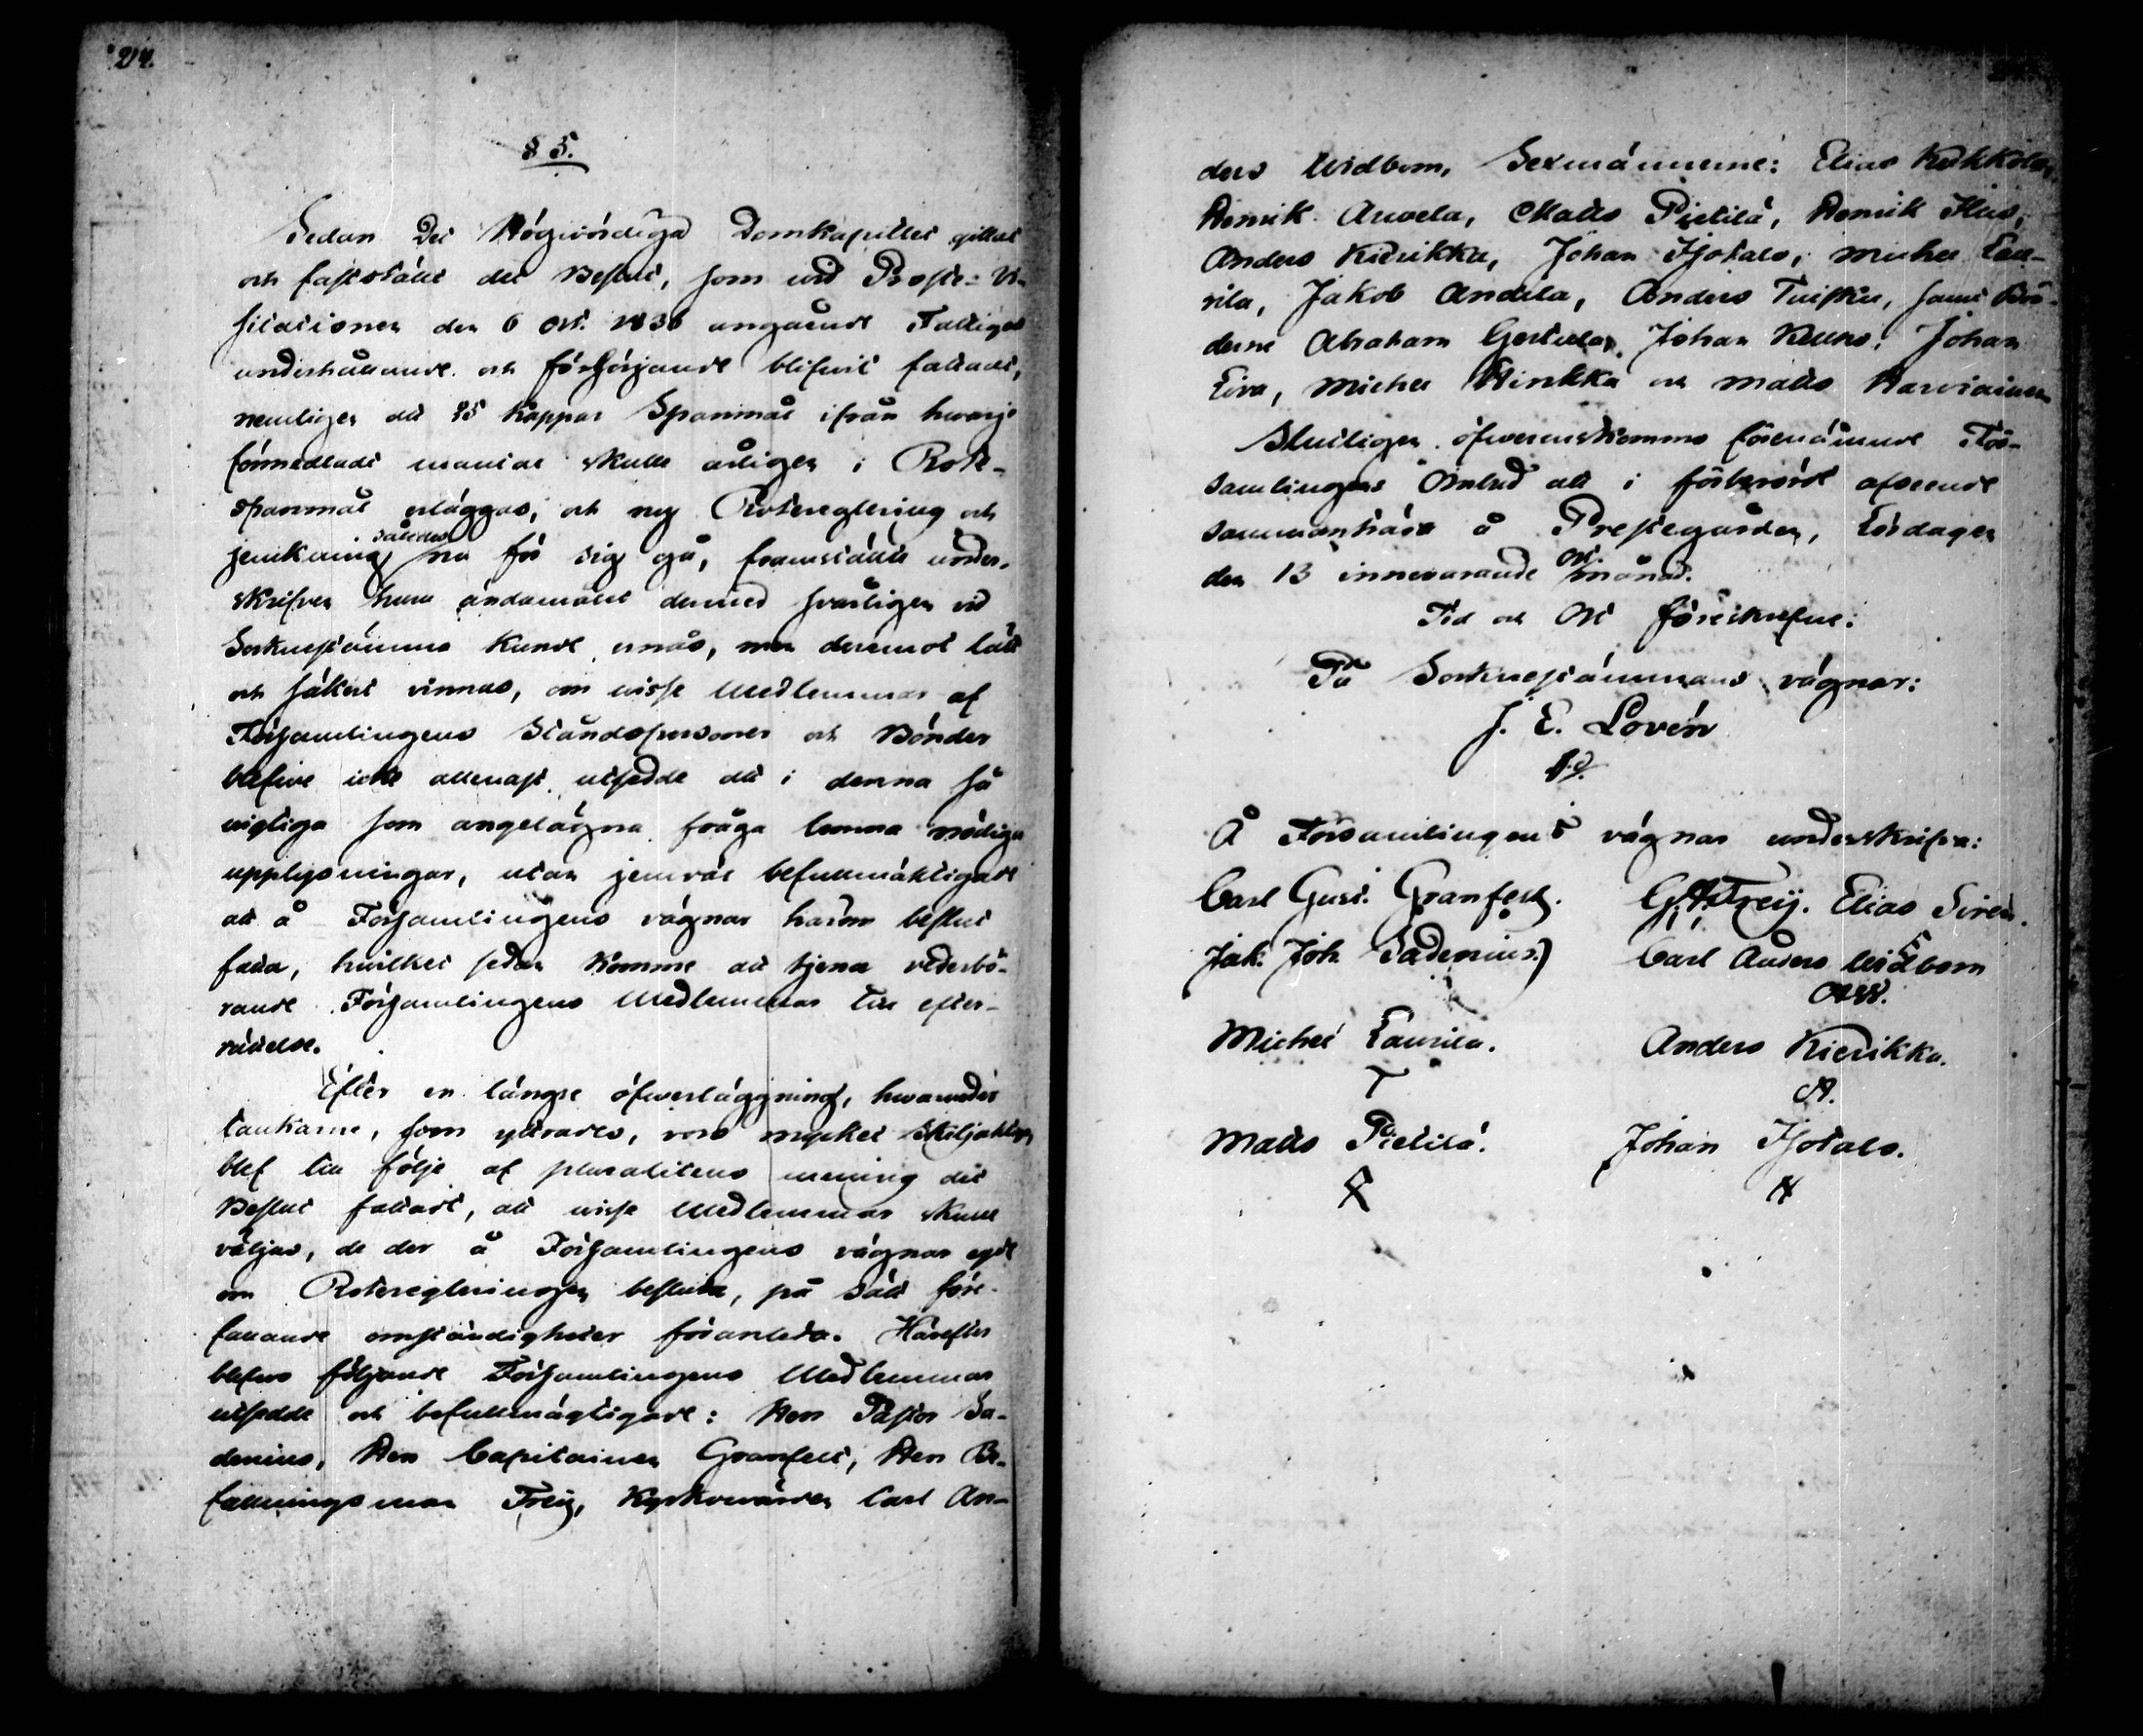 214.
§ 5.
Sedan Det Högvördiga Domkapitlet gillat
och fastställt det Beslut, som vid Prosts-Vi-
sitationen den 6 Oct. 1836 angående Fattigas
underhållande och försörjande blifvit fattadt,
nemligen att 15 kappar Spanmål ifrån hvarje
förmedladt mantal skulle årligen i Rote-
spanmål erläggas, och ny Rotereglering och
jemkning således nu för sig gå, framställde under-
skrifven huru ändamålet dermed svårligen vid
Sockneståmma kunde ernås, men deremot lätt
och säkert vinnas, om visse Medlemmar af
Församlingens Ståndspersoner och Bönder
blefve icke allenast utsedde att i denna så
vigtiga som angelägna fråga lemna nödiga
upplysningar, utan jemväl befullmäktigade
att å Församlingens vägnar härom beslut
fatta, hvilket sedan komme att tjena vederbö-
rande Församlingens Medlemmar till efter-
rättelse.
Efter en längre öfverläggning, hvarunder
tankarne, som yttrades, voro mycket skiljaktiga
blef till följe af pluralitens mening det
Beslut fattadt, att visse Medlemmar skulle
väljas, de der å Församlingens vägnar egde
om Roteregleringen besluta, på sätt före-
fallande omständigheter föranleda. Härefter
blefvo följande Församlingens Medlemmar
utsedde och befullmägtigade: Herr Pastor Sa-
denius, Herr Capitainen Granfelt, Herr Be-
fallningsman Freij, Kyrkovärden Carl An-
ders Widbom, Sexmännerne: Elias Kukkola,
Henrik Arvela, Matts Pietilä, Henrik Klas,
Anders Kierikka, Johan Tjotalo, Michel Lau-
rila, Jakob Andila, Anders Tuisku, samt Bön-
derne Abraham Johan Johan
Liva, Michel Hinkka och Matts Harviainen
Slutligen öfverenskommo förenämnde För-
samlingens Ombud att i förberördt afseende
sammanträda å Prestegården, Lördagen
den 13 innevarande Oct. månad.
Tid och Ort föreskrefne:
På Sockneståmmans vägnar:
J. E. Lovén
Å Församlingens vägnar underskrifva:
Carl Gust. Granfelt. G. A. Freij. Elias Siren.
Jak. Joh. Sadenius.) Carl Anders Widbom
Michel Laurila. Anders Kierikka.
Matts Pietilä. Johan Tjotalo.